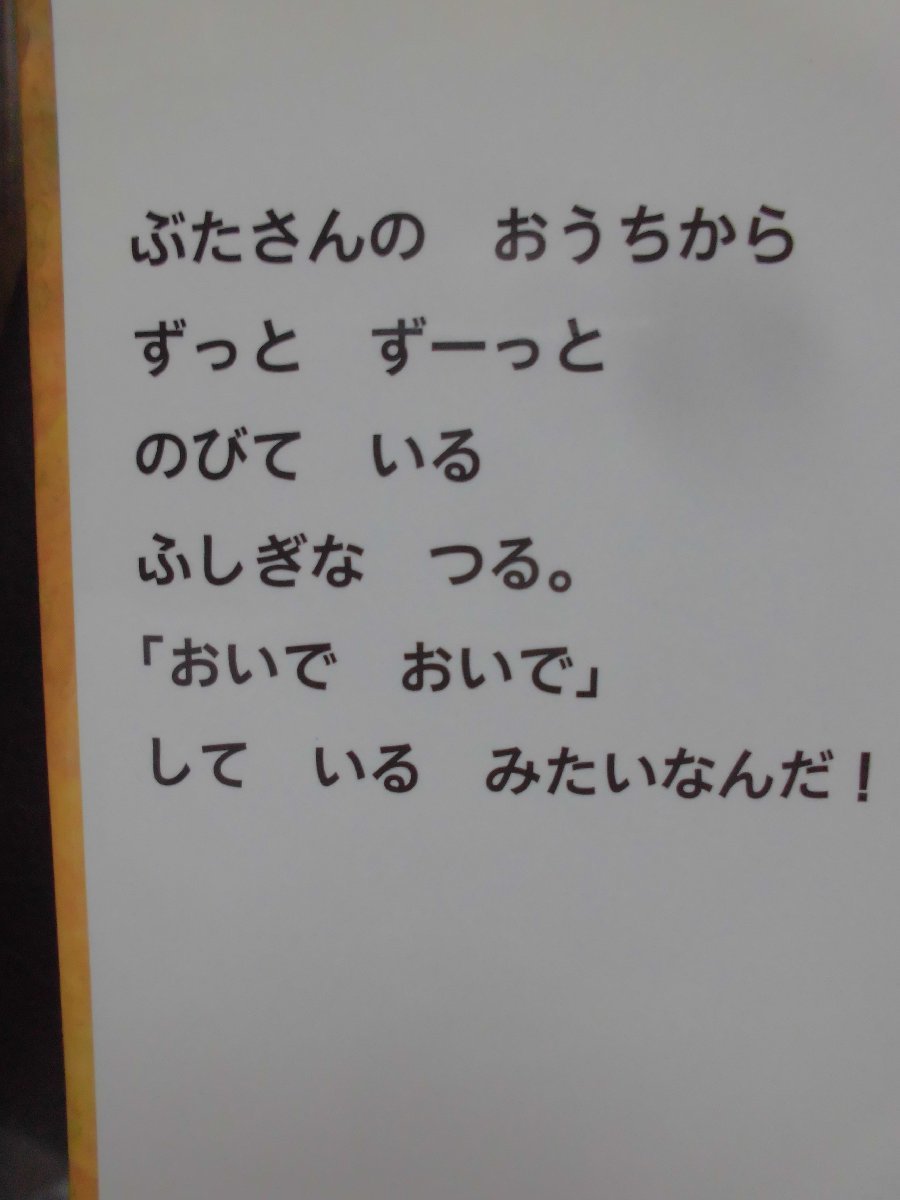 ぶたさんの　おうちから
ずっと　ずーっと
のびて　いる
ふしぎな　つる。
「おいで　おいで」
して　いる　みたいなんだ！